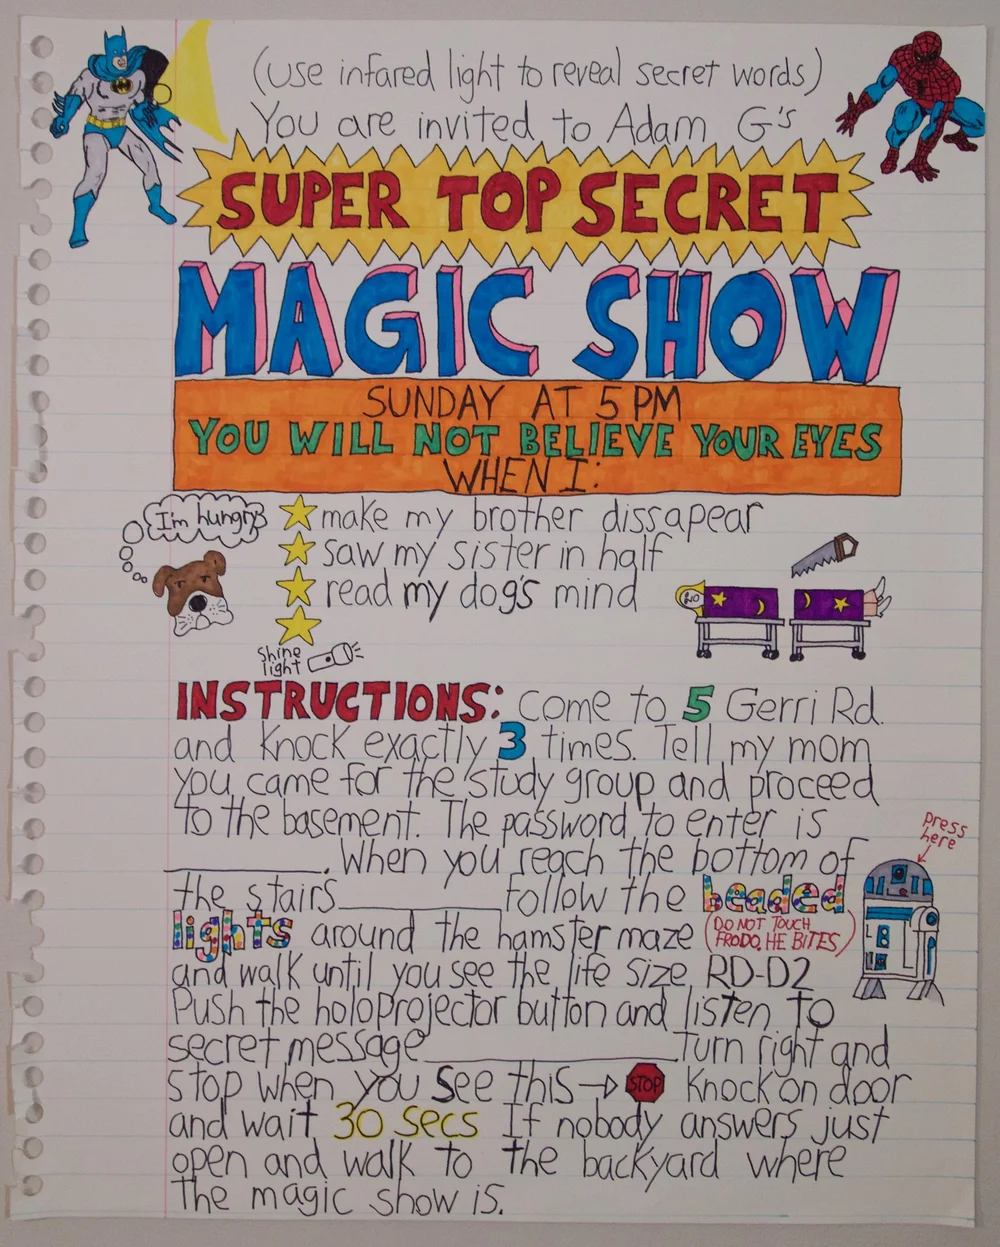 (Use infared light to reveal secret words)
You are invited to Adam G's
SUPER TOP SECRET
MAGIC SHOW
SUNDAY AT 5 PM
YOU WILL NOT BELIEVE YOUR EYES
WHEN I:
I'm hungry
make my brother dissapear
saw my sister in half
read my dog's mind
Shine
light
INSTRUCTIONS: Come to 5 Gerri Rd.
and knock exactly 3 times. Tell my mom
you came for the study group and proceed
to the basement. The password to enter is
____________. When you reach the bottom of
press
here
the stairs____________ follow the beaded
lights around the hamster maze
(DO NOT TOUCH
FRODO, HE BITES)
and walk until you see the life size RD-D2
Push the holoprojector button and listen to
secret message__________________ Turn right and
stop when you see this → STOP Knock on door
and wait 30 secs If nobody answers just
open and walk to the backyard where
the magic show is.